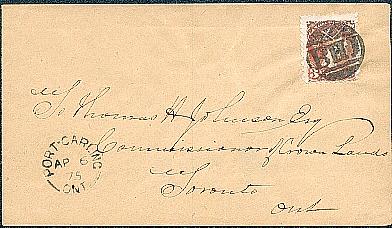 To Thomas H Johnson Esq
Commissioner Crown Lands
Toronto
Ont
PORT-CARLING
AP 6
75
ONT
3